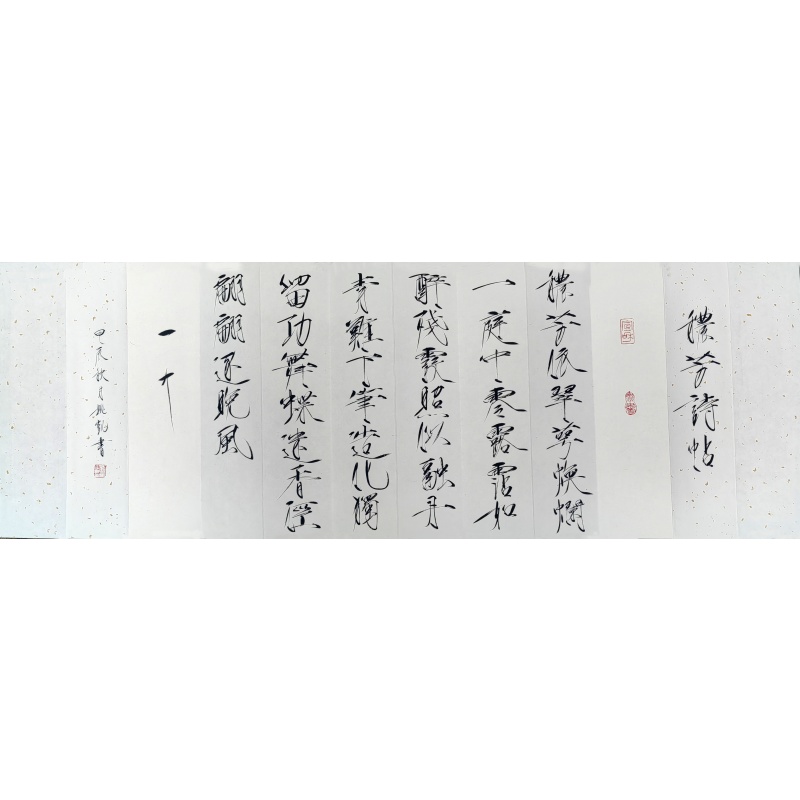 穠芳詩帖
穠芳依翠萼煥爛
一庭中零露霑如
醉殘霞照似融丹
青難下筆造化獨
留功舞蝶迷香徑
翩翩逐晚風
一十
甲辰秋月 書